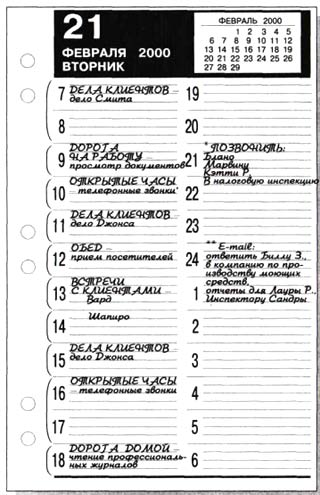 21
ФЕВРАЛЯ 2000
ВТОРНИК
ФЕВРАЛЬ 2000
1 2 3 4 5
6 7 8 9 10 11 12
13 14 15 16 17 18 19
20 21 22 23 24 25 26
27 28 29
7 ДЕЛА КЛИЕНТОВ –
дело Смита
8
9 ДОРОГА
НА РАБОТУ –
просмотр документов
10 ОТКРЫТЫЕ ЧАСЫ
– телефонные звонки*
11 ДЕЛА КЛИЕНТОВ –
дело Джонса
12 ОБЕД –
прием посетителей
13 ВСТРЕЧИ
С КЛИЕНТАМИ –
Вард
14 Шапиро
15 ДЕЛА КЛИЕНТОВ –
дело Джонса
16 ОТКРЫТЫЕ ЧАСЫ
– телефонные звонки
17
18 ДОРОГА ДОМОЙ –
чтение профессиональ-
ных журналов
19
20
21 * ПОЗВОНИТЬ:
Блано
Марвину
Кэтти Р.
В налоговую инспекцию
22
23
24 ** E-mail:
ответить Биллу З.,
в компанию по про-
изводству моющих
средств,
1 отчеты для Лауры Р.,
Инспектору Сандры
2
3
4
5
6